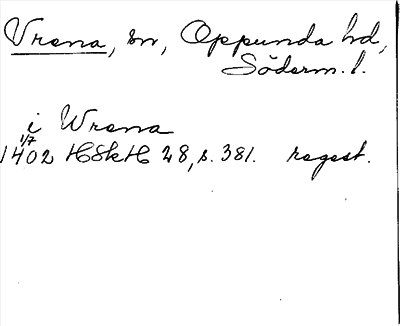 Vrena, sn, Oppunda hd,
Söderm. l.
i Wrena
1402 1/7 HSkH 28, s. 381. regest.